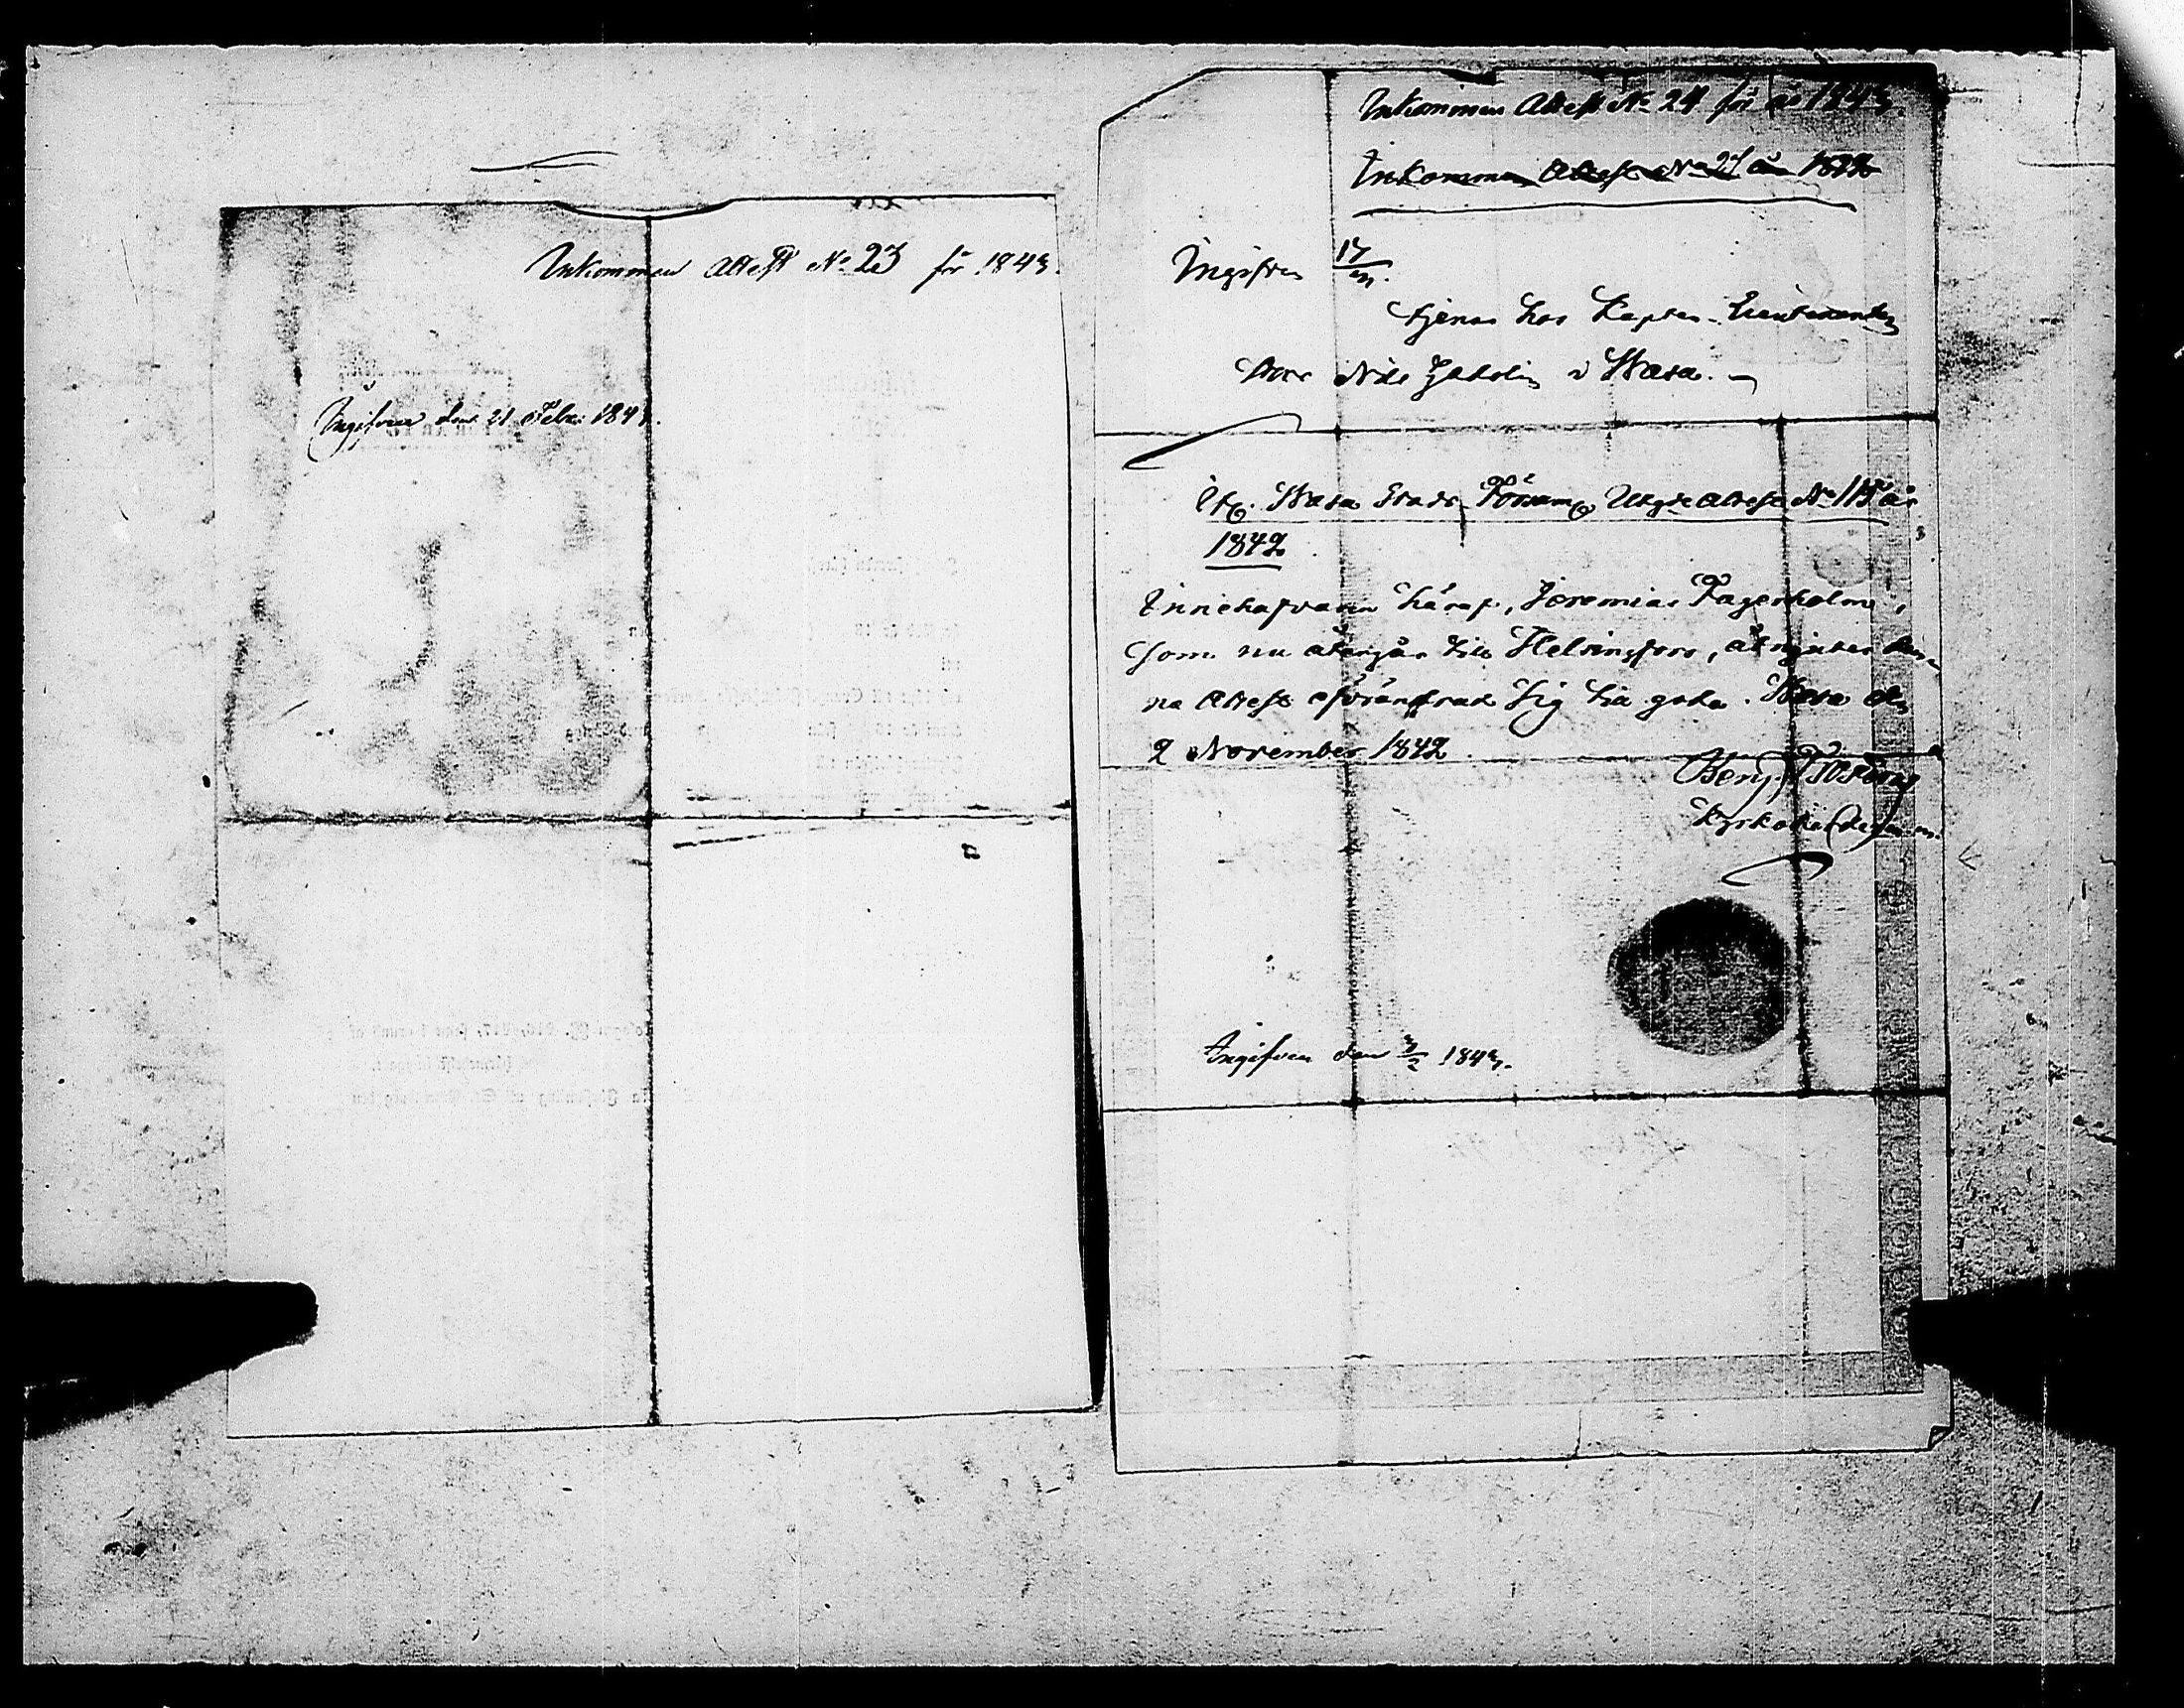 Inkommen Attest No 23 för 1843.
Ingifven den 21 Febr. 1843.
Inkommen Attest No 24 för år 1843.
Inkommen Attest No 27 år 1842
Ingifven 17/m.
tjenar hos Kapten-Lieutenanten
Nils i Wasa.
Wasa Stads Församlg Utgde Attest No 115 år
1842
Innehafvaren häraf, Jeremias Fagerholm,
som nu återgår till Helsingfors, åtnjuter den-
na Attest oförändrad sig till godo. Wasa den
2 November 1842.
Ingifven den 3/2 1843.